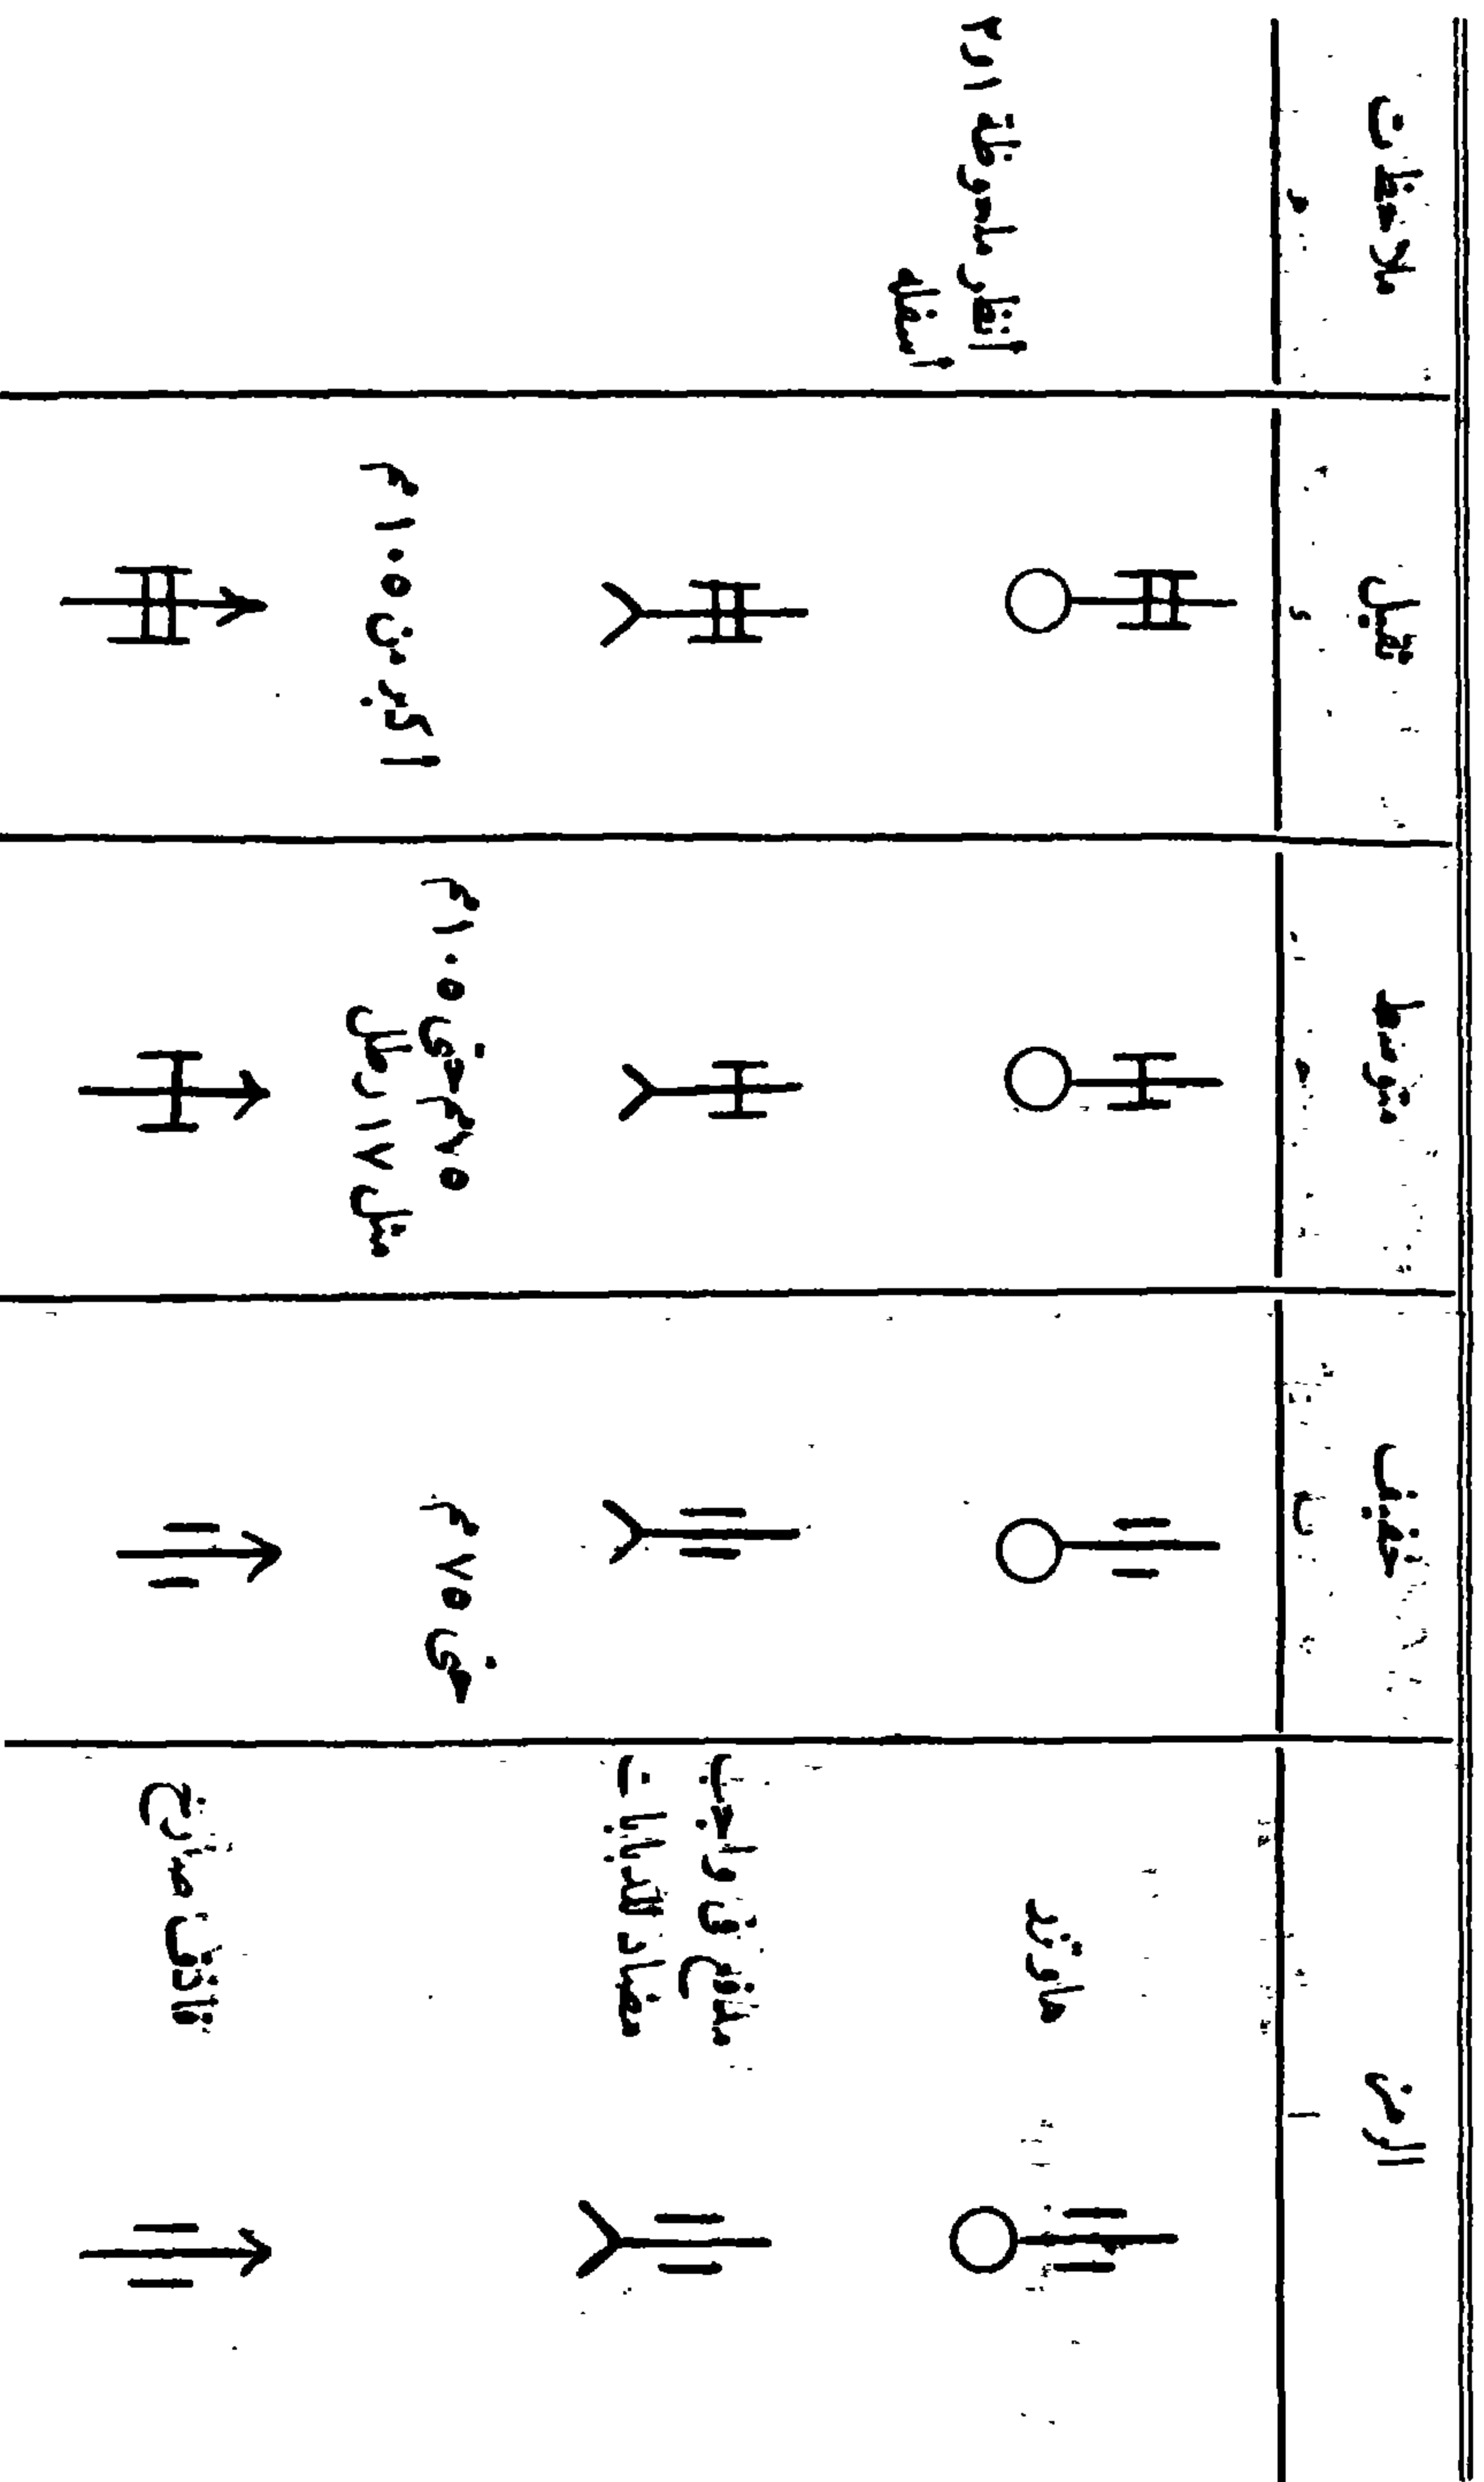 الرمز خفيف متوسط ثقيل ملاحظات
ا
هاوند
أنظر ملحوظة ١ و ٢
أسفله
مدفع فى واجب
مضاد للدبابات
حتى ٧٥ م
٧٥ م حتى ١٠٥ م
مثل ١٧ رطل
أكبر من ١٠٥ م
قاذف صاروخ